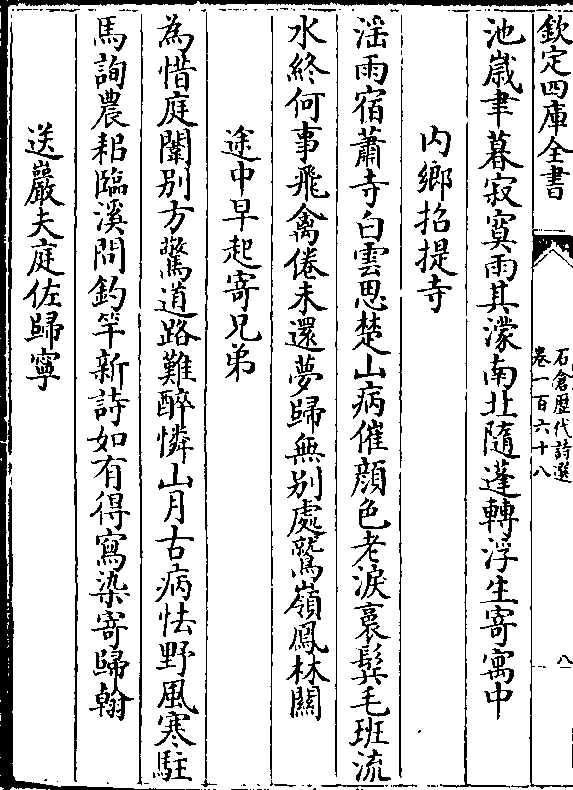 欽定四庫全書
石倉歴代詩選
卷一百六十八
八
池嵗聿暮寂寞雨其濛南北隨蓬轉浮生寄寓中
内鄉招提寺
滛雨宿蕭寺白雲思楚山病催顔色老淚裛鬂毛班流
水終何事飛禽倦未還夢歸無别處鷲嶺鳳林闗
途中早起寄兄弟
為惜庭闈别方驚道路難醉憐山月古病怯野風寒駐
馬詢農耜臨溪問釣竿新詩如有得寫染寄歸翰
送巖夫庭佐歸寧